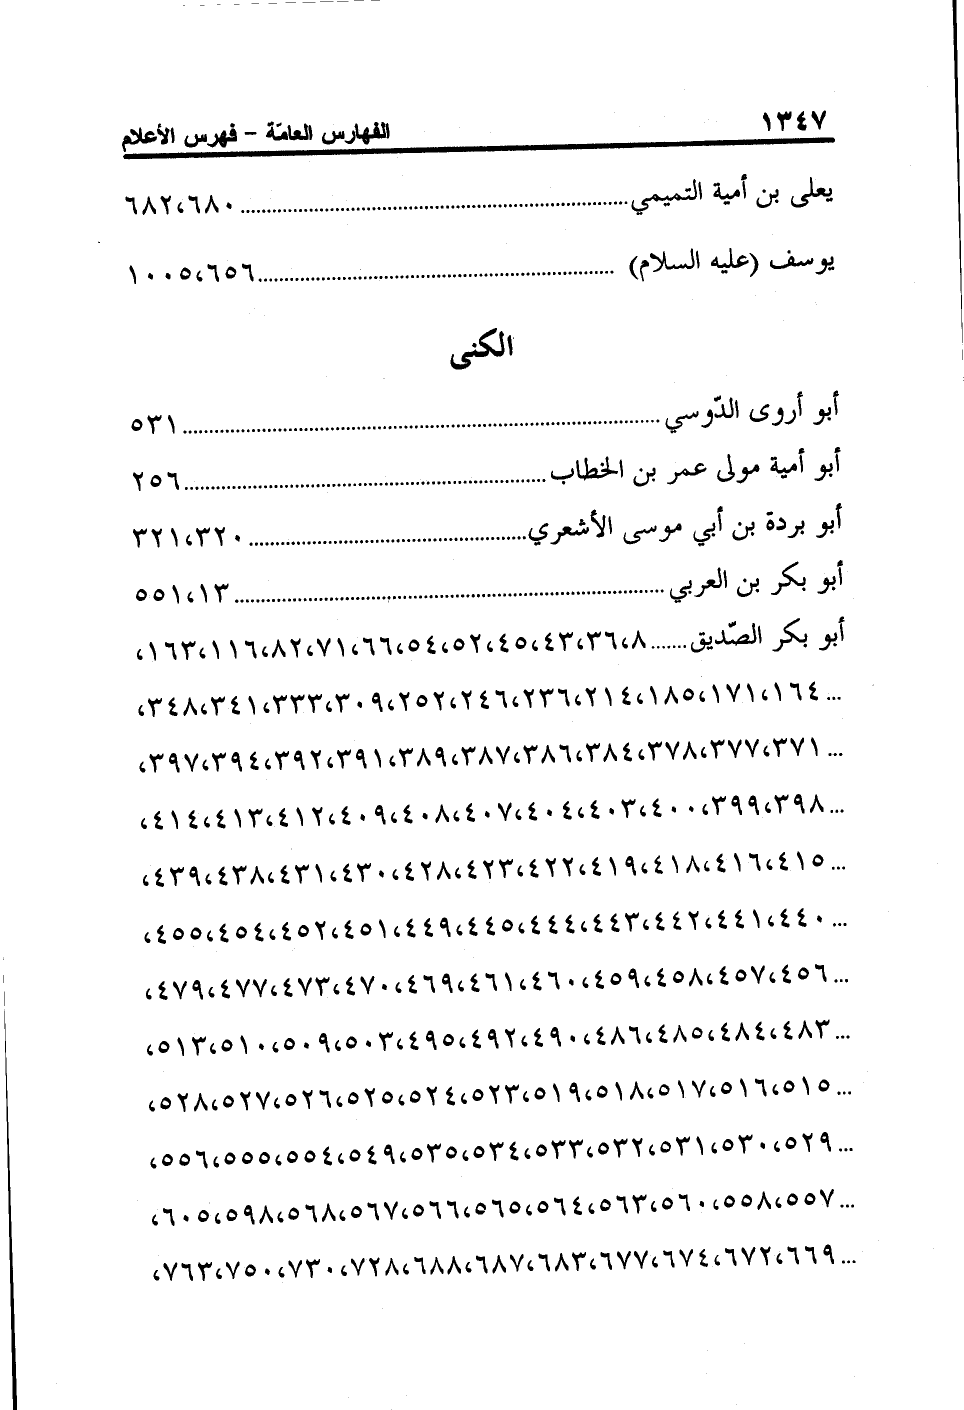 ١٣٤٧ الفهارس العامّة - فهرس الأعلام
يعلى بن أمية التميمي ............ ٦٨٢،٦٨٠
يوسف (عليه السلام) ............ ١٠٠٥،٦٥٦
الكنى
أبو أروى الدّوسي ............ ٥٣١
أبو أمية مولى عمر بن الخطاب ............ ٢٥٦
أبو بردة بن أبي موسى الأشعري ............ ٣٢١،٣٢٠
أبو بكر بن العربي ............ ٥٥١،١٣
أبو بكر الصّديق ....... ٨،٣٦،٤٣،٤٥،٥٢،٥٤،٦٦،٧١،٨٢،١١٦،١٦٣،
... ١٦٤،١٧١،١٨٥،٢١٤،٢٣٦،٢٤٦،٢٥٢،٣٠٩،٣٣٣،٣٤١،٣٤٨،
... ٣٧١،٣٧٧،٣٧٨،٣٨٤،٣٨٦،٣٨٧،٣٨٩،٣٩١،٣٩٢،٣٩٤،٣٩٧،
... ٣٩٨،٣٩٩،٤٠٠،٤٠٣،٤٠٤،٤٠٧،٤٠٨،٤٠٩،٤١٢،٤١٣،٤١٤،
... ٤١٥،٤١٦،٤١٨،٤١٩،٤٢٢،٤٢٣،٤٢٨،٤٣٠،٤٣١،٤٣٨،٤٣٩،
... ٤٤٠،٤٤١،٤٤٢،٤٤٣،٤٤٤،٤٤٥،٤٤٩،٤٥١،٤٥٢،٤٥٤،٤٥٥،
... ٤٥٦،٤٥٧،٤٥٨،٤٥٩،٤٦٠،٤٦١،٤٦٩،٤٧٠،٤٧٣،٤٧٧،٤٧٩،
... ٤٨٣،٤٨٤،٤٨٥،٤٨٦،٤٩٠،٤٩٢،٤٩٥،٥٠٣،٥٠٩،٥١٠،٥١٣،
... ٥١٥،٥١٦،٥١٧،٥١٨،٥١٩،٥٢٣،٥٢٤،٥٢٥،٥٢٦،٥٢٧،٥٢٨،
... ٥٢٩،٥٣٠،٥٣١،٥٣٢،٥٣٣،٥٣٤،٥٣٥،٥٤٩،٥٥٤،٥٥٥،٥٥٦،
... ٥٥٧،٥٥٨،٥٦٠،٥٦٣،٥٦٤،٥٦٥،٥٦٦،٥٦٧،٥٦٨،٥٩٨،٦٠٥،
... ٦٦٩،٦٧٢،٦٧٤،٦٧٧،٦٨٣،٦٨٧،٦٨٨،٧٢٨،٧٣٠،٧٥٠،٧٦٣،